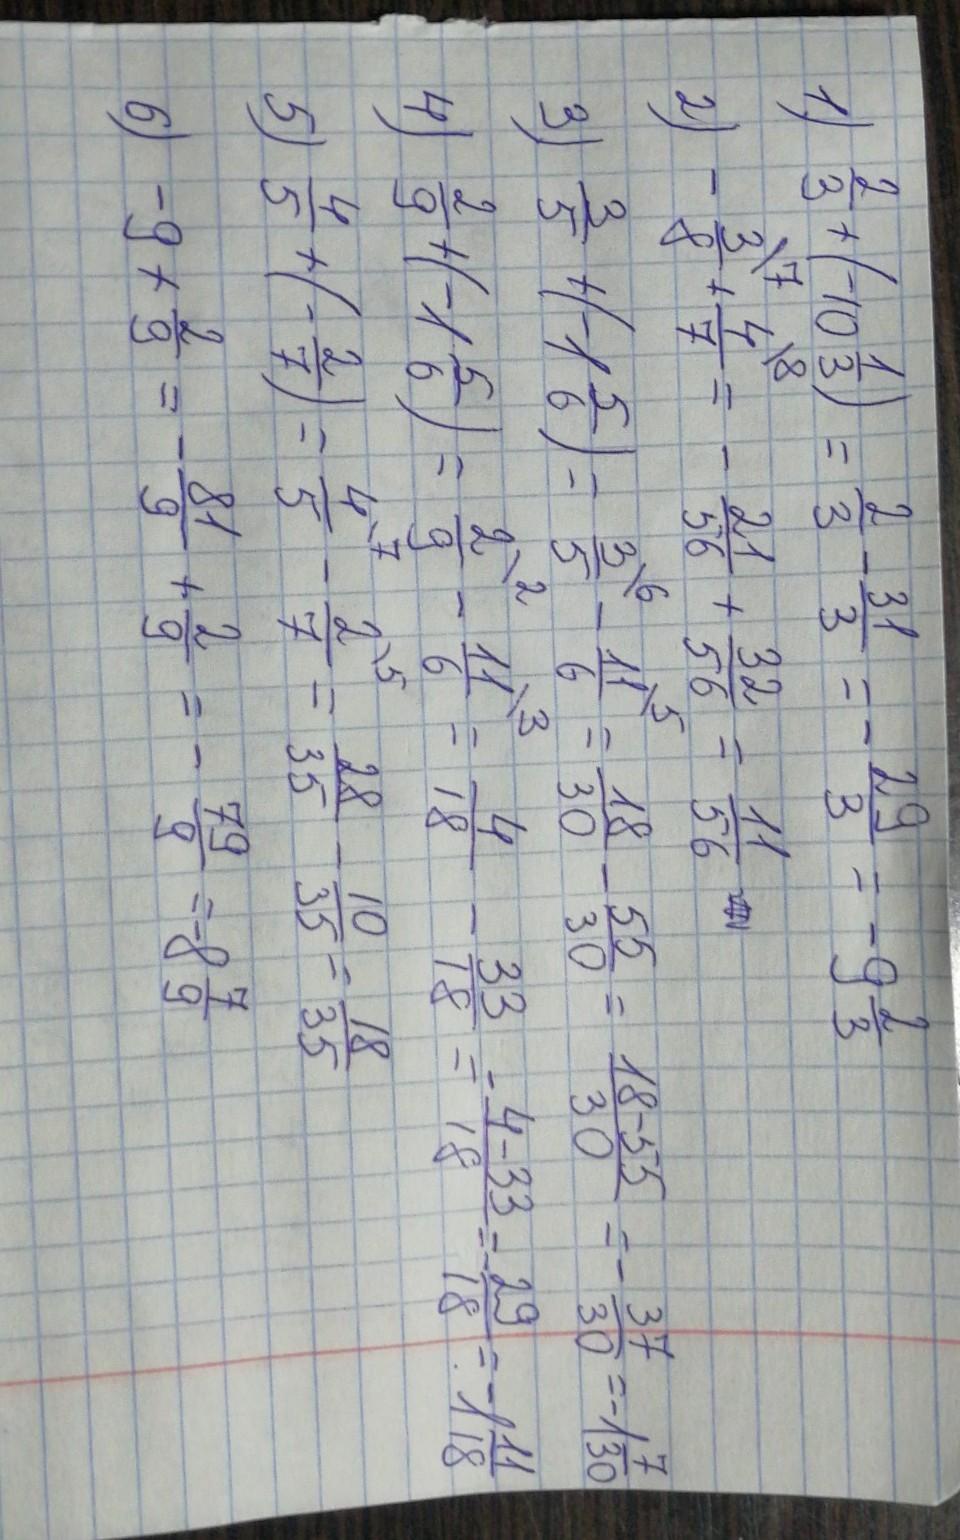 1) 2/3 + (-10 1/3) = 2/3 - 31/3 = - 29/3 = -9 2/3
2) - 3\7/8 + 4\8/7 = - 21/56 + 32/56 = 11/56
3) 3/5 + (-1 5/6) = 3\6/5 - 11\5/6 = 18/30 - 55/30 = 18-55/30 = - 37/30 = -1 7/30
4) 2/9 + (-1 5/6) = 2\2/9 - 11\3/6 = 4/18 - 33/18 = - 4-33/18 = - 29/18 = -1 11/18
5) 4/5 + (- 2/7) = 4\7/5 - 2\5/7 = 28/35 - 10/35 = 18/35
6) -9 + 2/9 = - 81/9 + 2/9 = - 79/9 = -8 7/9